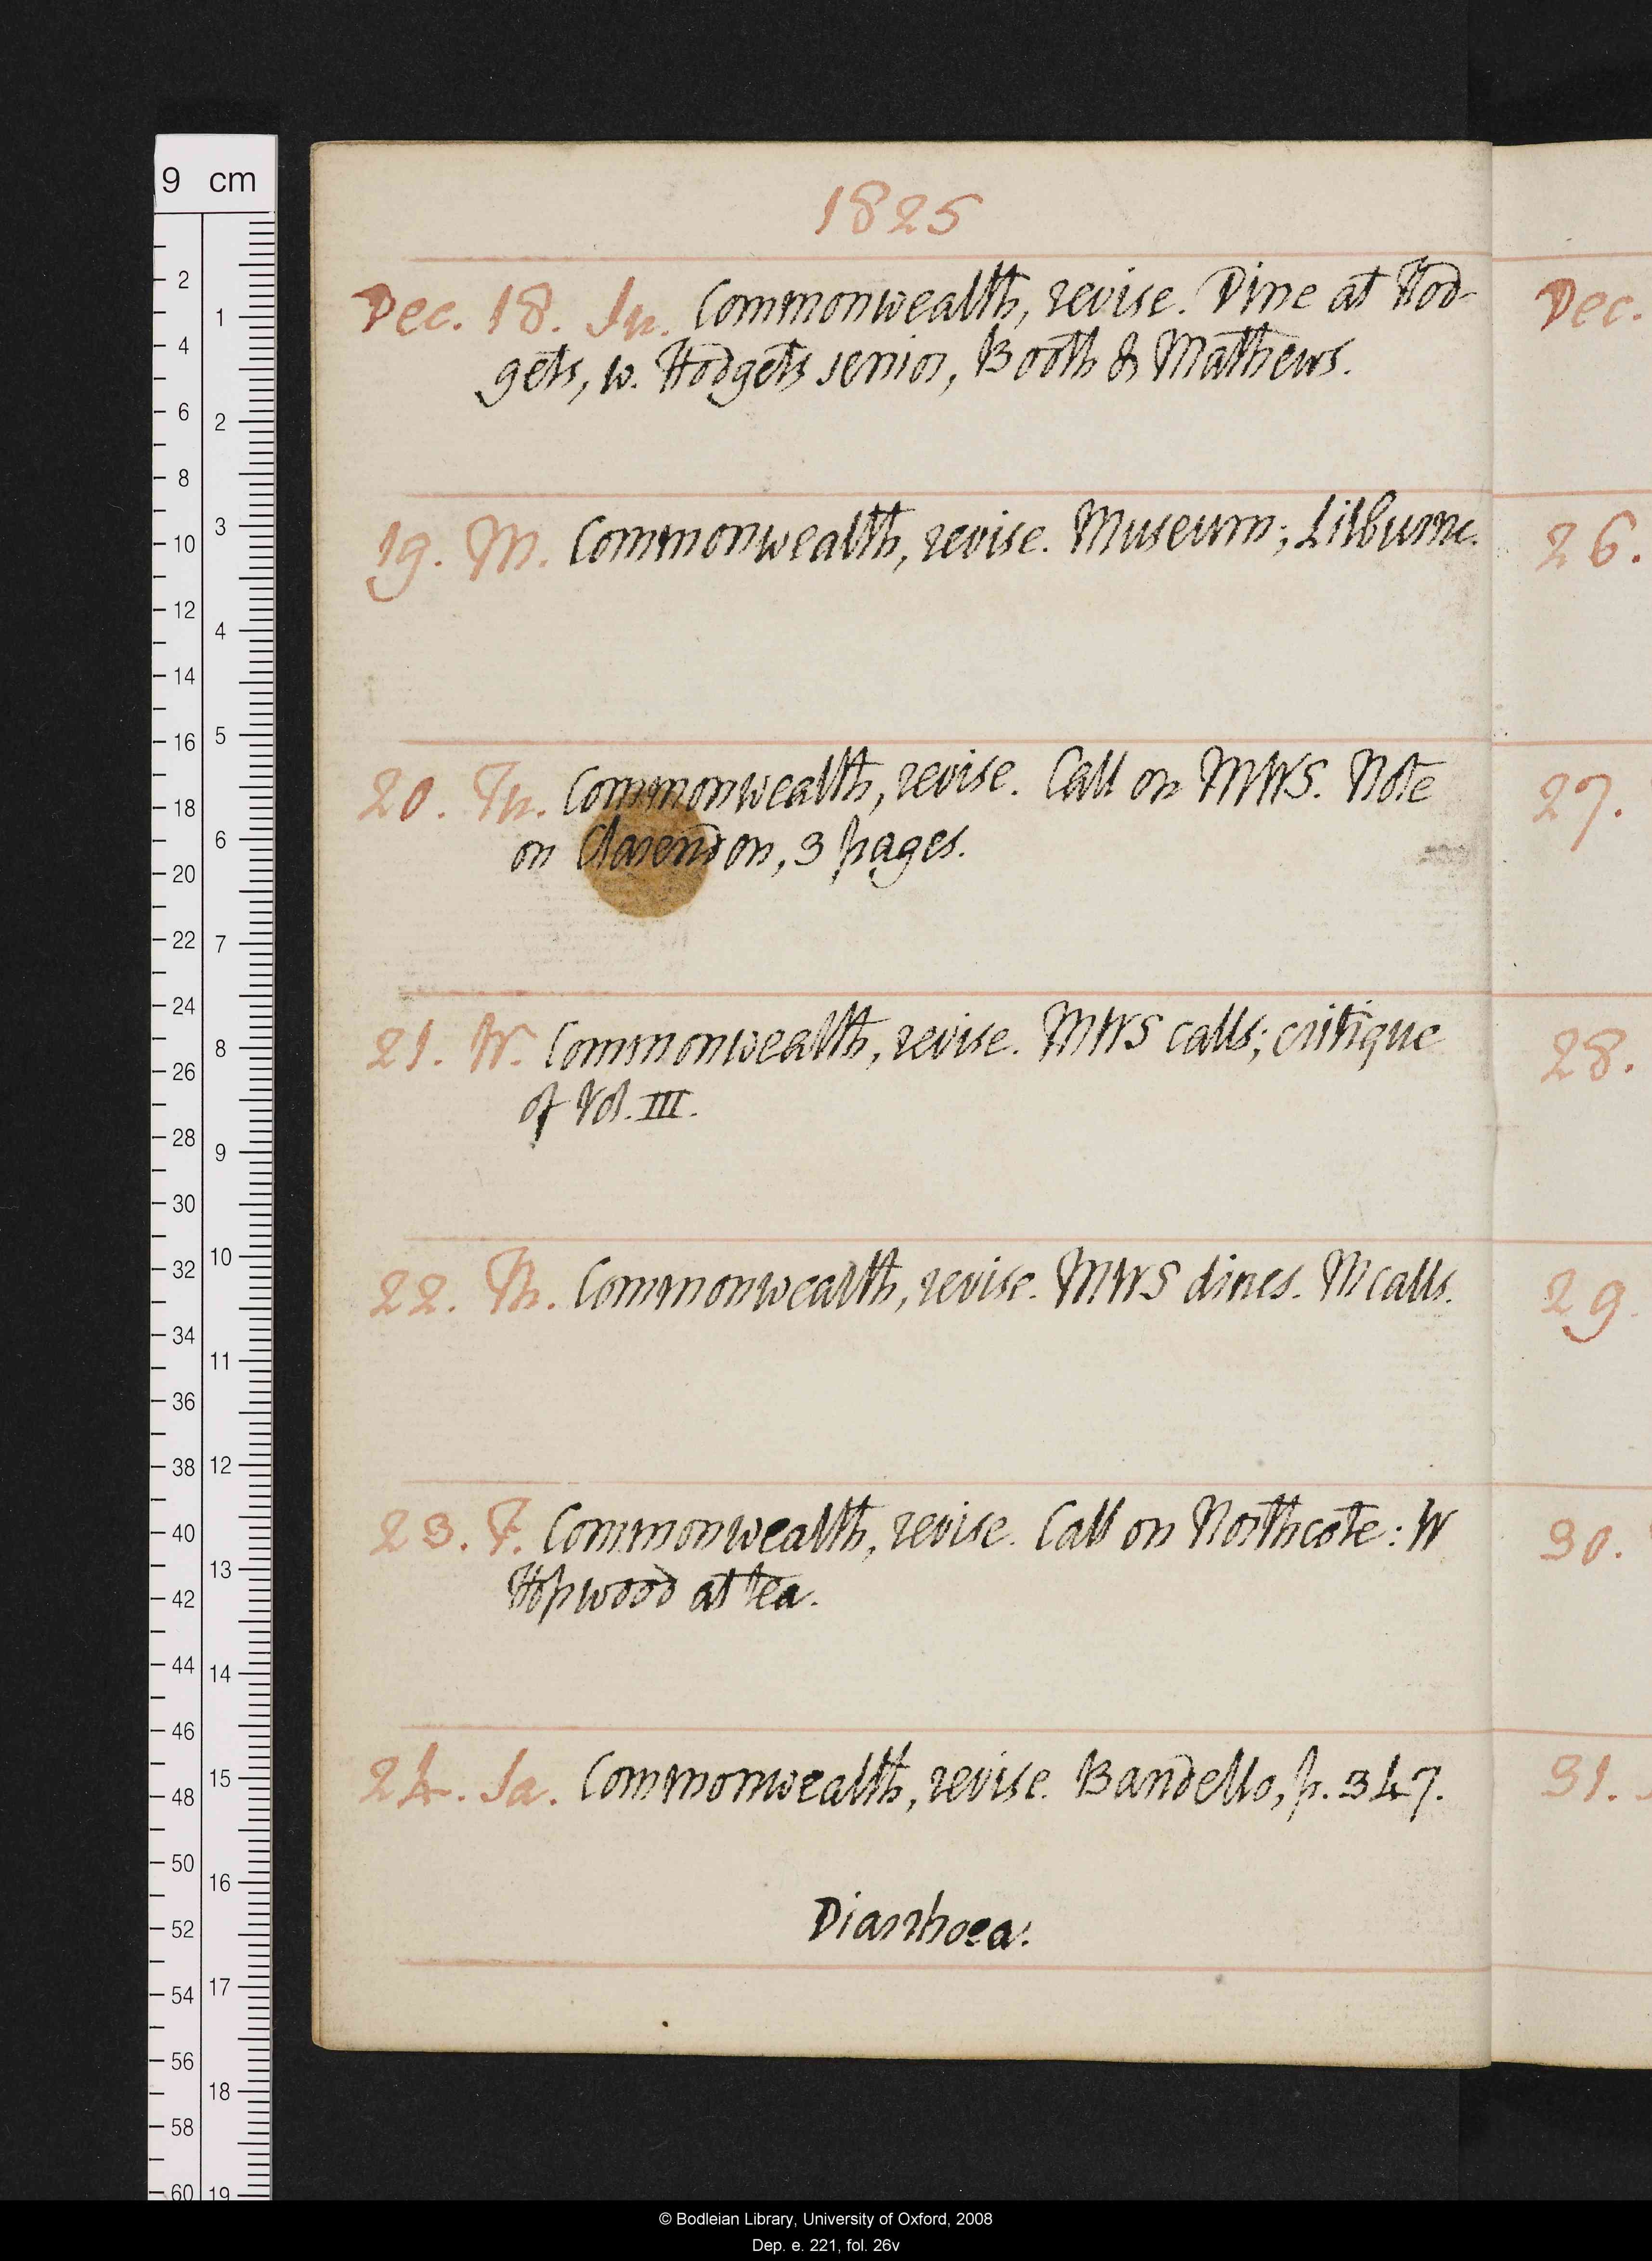 1825
Dec. 18. Su. Commonwealth, revise. Dine at Hod-
gets, w. Hodgets senior, Booth & Mathews.
19. M. Commonwealth, revise. Museum; Lilburne.
20. Tu. Commonwealth, revise. Call on MWS. Note
on Clarendon, 3 pages.
21. W. Commonwealth, revise. MWS calls; critique
of Vol. III.
22. Th. Commonwealth, revise. MWS dines. M calls.
23. F. Commonwealth, revise. Call on Northcote: W
Hopwood at tea.
24. Sa. Commonwealth, revise. Bandello, p. 347.
Diarrhoea.
Dec.
26.
27.
28.
29.
30.
31.
9 cm
2
4
6
8
10
12
14
16
18
20
22
24
26
28
30
32
34
36
38
40
42
44
46
48
50
52
54
56
58
60
1
2
3
4
5
6
7
8
9
10
11
12
13
14
15
16
17
18
19
© Bodleian Library, University of Oxford, 2008
Dep. e. 221, fol. 26v